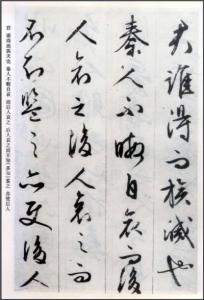 君誰得而族滅也
秦人不暇自哀而後
人哀之後人哀之而
不知鑒之亦使後人
君 谁得而族灭也 秦人不暇自哀 而后人哀之 后人哀之而不知（多知）鉴之 亦使后人